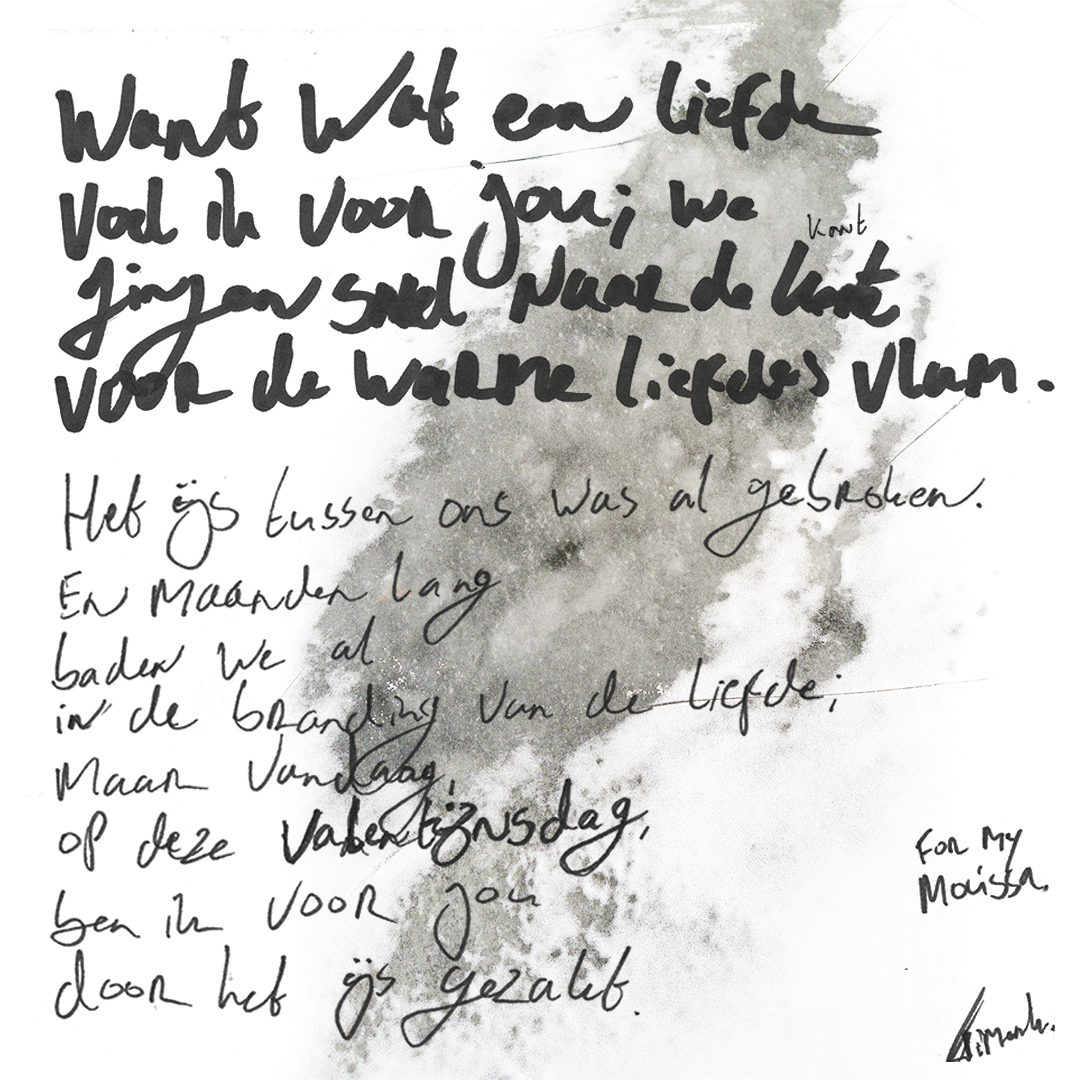 Want Wat een liefde
voel ik voor jou; we
kant
gingen snel naar de kant
voor de warme liefdes vlam.
Het ijs tussen ons was al gebroken.
En maanden lang
baden we al
in de branding van de liefde;
Maar vandaag,
op deze Valentijnsdag,
ben ik voor jou
door het ijs gezakt.
For my